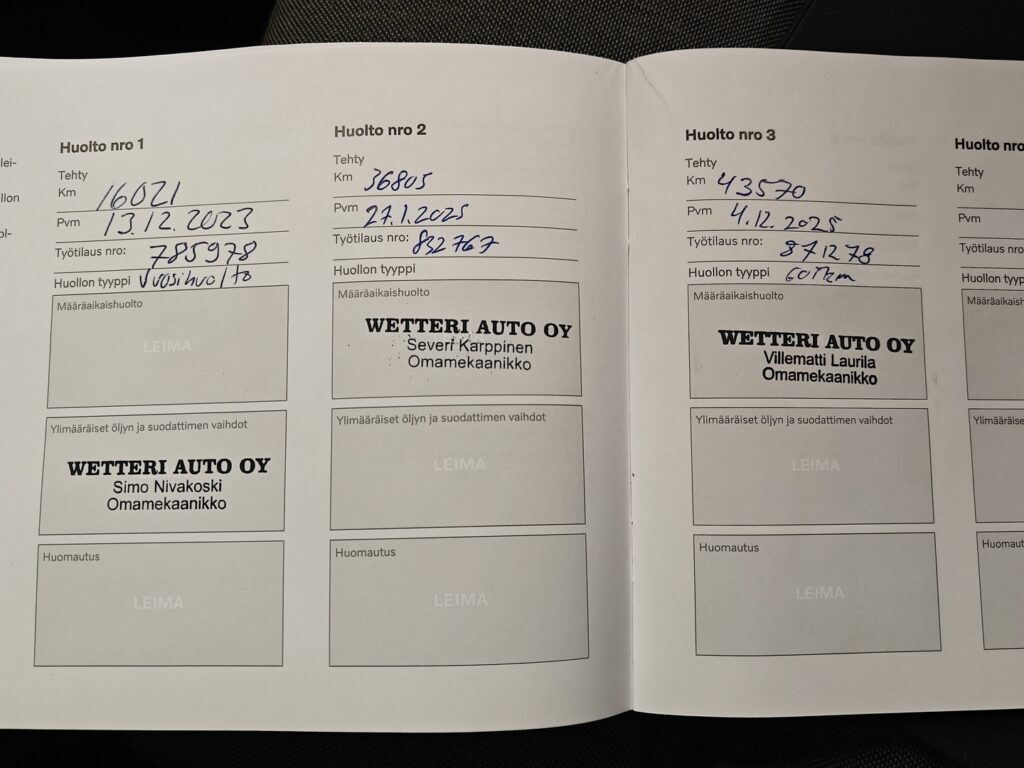 lei-
llon
ol-
Huolto nro 1
Tehty
Km 16021
Pvm 13.12.2023
Työtilaus nro: 785978
Huollon tyyppi Vuosihuolto
Määräaikaishuolto
LEIMA
Ylimääräiset öljyn ja suodattimen vaihdot
WETTERI AUTO OY
Simo Nivakoski
Omamekaanikko
Huomautus
LEIMA
Huolto nro 2
Tehty
Km 36805
Pvm 27.1.2025
Työtilaus nro: 832767
Huollon tyyppi
Määräaikaishuolto
WETTERI AUTO OY
Severi Karppinen
Omamekaanikko
Ylimääräiset öljyn ja suodattimen vaihdot
LEIMA
Huomautus
LEIMA
Huolto nro 3
Tehty
Km 43570
Pvm 4.12.2025
Työtilaus nro: 871278
Huollon tyyppi
Määräaikaishuolto
WETTERI AUTO OY
Villematti Laurila
Omamekaanikko
Ylimääräiset öljyn ja suodattimen vaihdot
LEIMA
Huomautus
LEIMA
Huolto nro
Tehty
Km
Pvm
Työtilaus nro
Huollon tyyppi
Määräaikaish
Ylimääräise
Huomaut